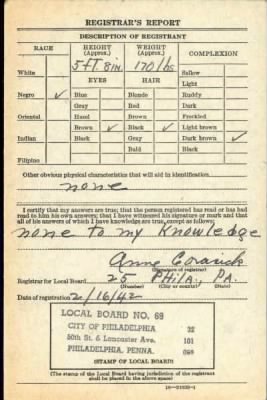 REGISTRAR'S REPORT
DESCRIPTION OF REGISTRANT
RACE HEIGHT (Approx.) WEIGHT (Approx.) COMPLEXION
5 ft 8 in. 170 lbs
White Sallow
EYES HAIR Light
Negro ✓ Blue Blonde Ruddy
Gray Red Dark
Oriental Hazel Brown Freckled
Brown ✓ Black ✓ Light brown
Indian Black Gray Dark brown ✓
Bald Black
Filipino
Other obvious physical characteristics that will aid in identification
none
I certify that my answers are true; that the person registered has read or has had
read to him his own answers; that I have witnessed his signature or mark and that
all of his answers of which I have knowledge are true, except as follows:
none to my knowledge
Anne
(Signature of registrar)
Registrar for Local Board 25 Phila., PA.
(Number) (City or county) (State)
Date of registration 2/16/42
LOCAL BOARD NO. 69
CITY OF PHILADELPHIA 32
50th St. & Lancaster Ave. 101
PHILADELPHIA, PENNA. 069
(STAMP OF LOCAL BOARD)
(The stamp of the Local Board having jurisdiction of the registrant
shall be placed in the above space)